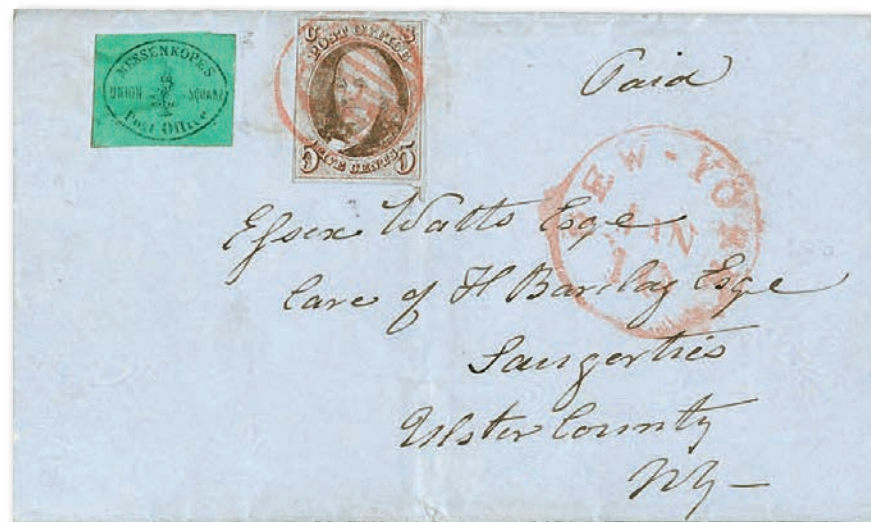 MESSENKOPE'S
UNION SQUARE
Post Office
POST OFFICE
5 FIVE CENTS 5
Paid
NEW-YORK
JUN
Essex Watts Esqe
Care of H Barclay Esqe
Saugerties
Ulster County
NY